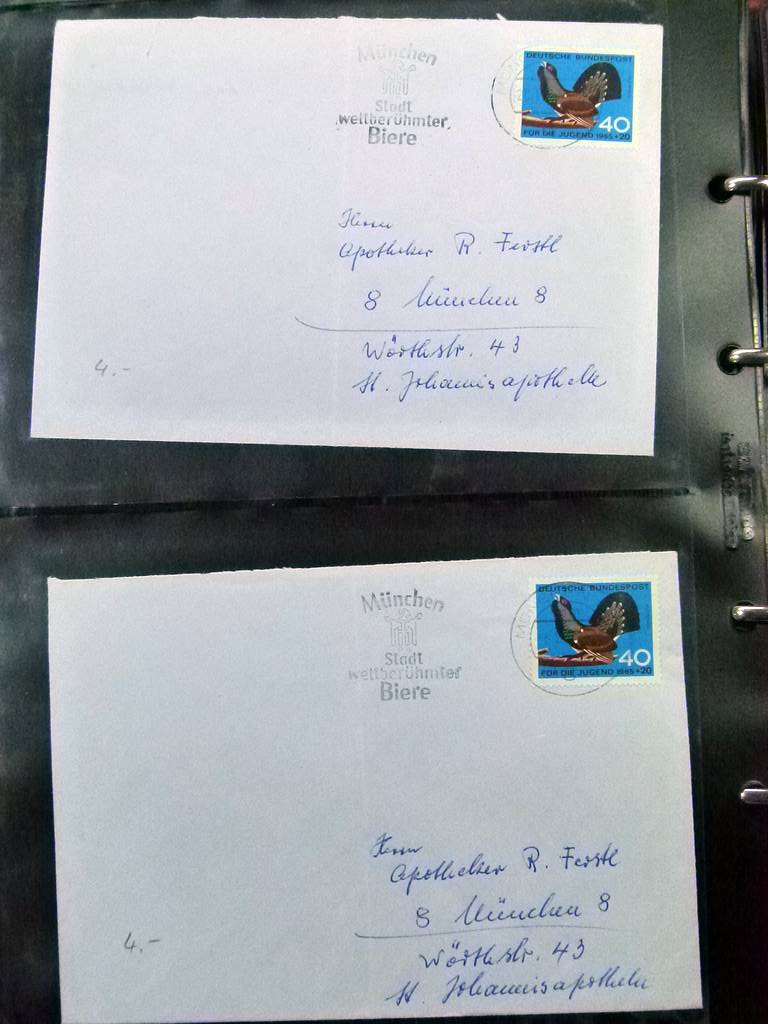 München
Stadt
weltberühmter
Biere
DEUTSCHE BUNDESPOST
40
FÜR DIE JUGEND 1965 + 20
Herrn
Apotheker R. Ferstl
8 München 8
Wörthstr. 43
St. Johannisapotheke
4.-
München
Stadt
weltberühmter
Biere
DEUTSCHE BUNDESPOST
40
FÜR DIE JUGEND 1965 + 20
Herrn
Apotheker R. Ferstl
8 München 8
Wörthstr. 43
St. Johannisapotheke
4.-